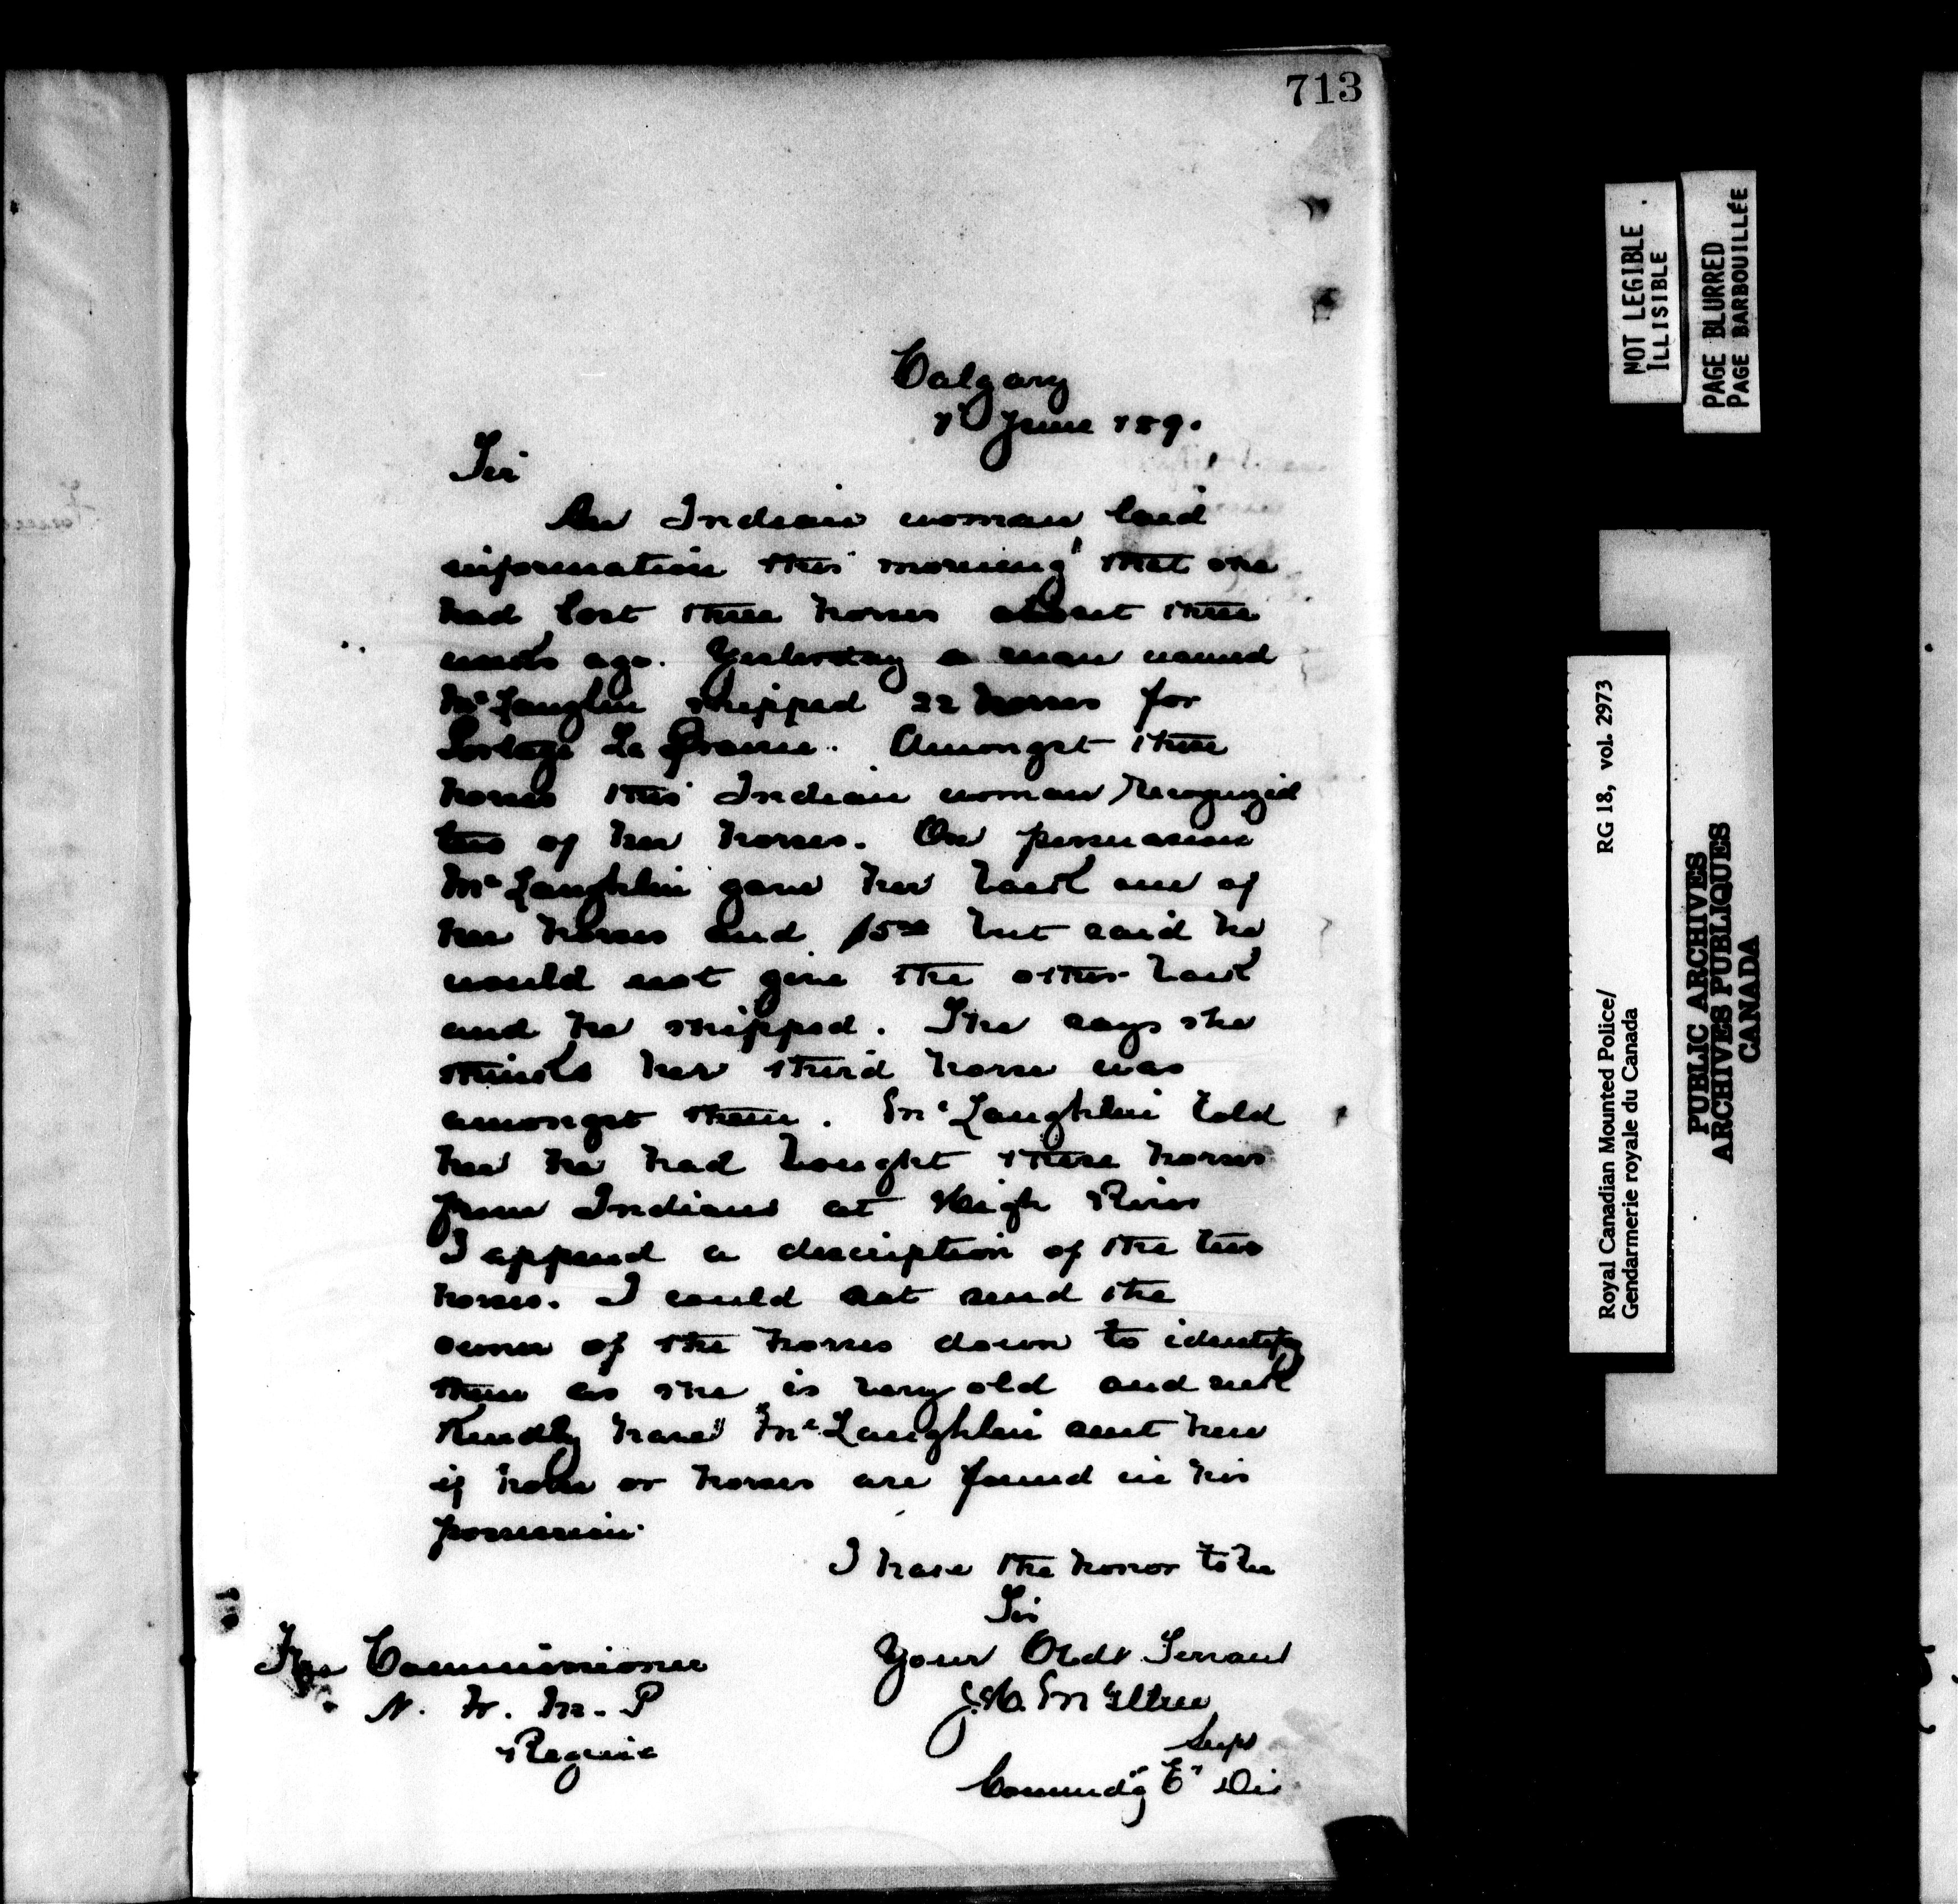 713
Calgary
7th June 1890
Sir
An Indian woman laid
information this morning that she
had lost three horses about three
weeks ago. Yesterday a man named
McLaughlin shipped 22 horses for
Portage La Prairie. Amongst these
horses this Indian woman recognized
two of her horses. On persuasion
McLaughlin gave her back one of
her horses and $5.00 but said he
would not give the other back
and he shipped. She says she
thinks her third horse was
amongst them. McLaughlin told
her he had bought these horses
from Indians at High River
I append a description of the two
horses. I could not send the
owner of the horses down to identify
them as she is very old and sick
Kindly have McLaughlin sent here
if horse or horses are found in his
possession.
I have the honor to be
Sir
Your Obdt Servant
J.H. McIllree
Supt
Commdg "E" Div
The Commissioner
N. W. M. P
Regina
NOT LEGIBLE
ILLISIBLE
PAGE BLURRED
PAGE BARBOUILLÉE
Royal Canadian Mounted Police/ RG 18, vol. 2973
Gendarmerie royale du Canada
PUBLIC ARCHIVES
ARCHIVES PUBLIQUES
CANADA